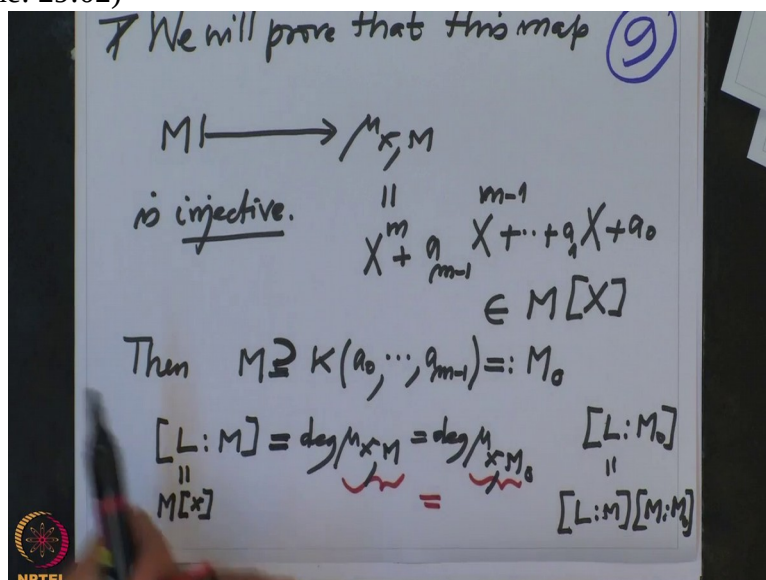 7 We will prove that this map ⑨
M ↦ μ_{x,M}
is injective.
||
X^m + a_{m-1} X^{m-1} + ·· + a_1 X + a_0
∈ M[X]
Then M ⊇ K(a_0, ..., a_{m-1}) =: M_0
[L:M] = deg μ_{x,M} = deg μ_{x,M_0} [L:M_0]
|| = ||
M[x] [L:M][M:M_0]
NPTEL